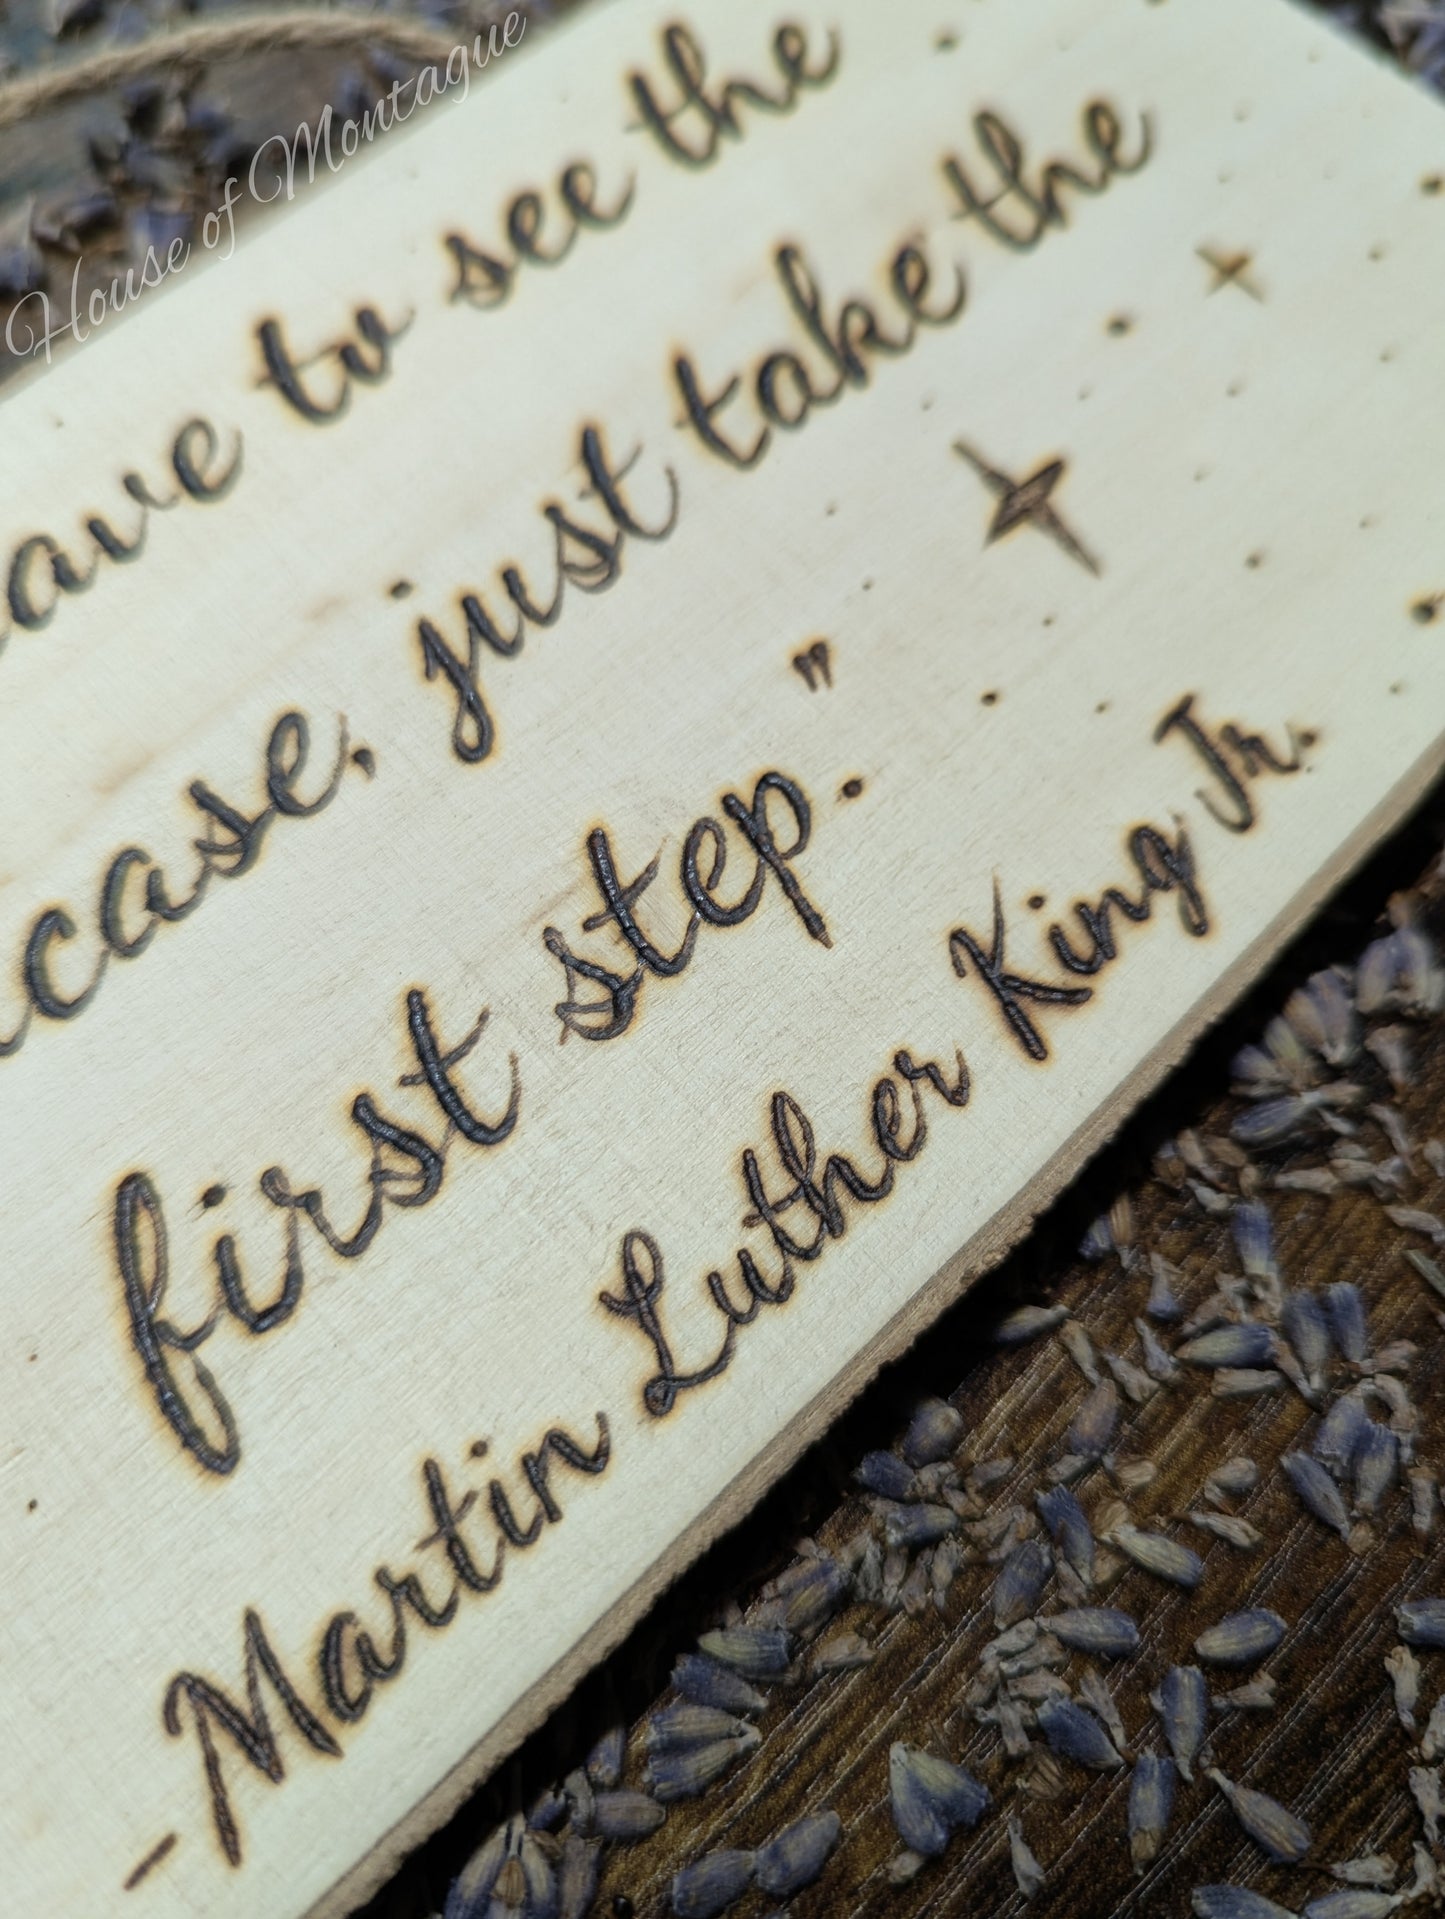 House of Montague
ave to see the
case, just take the
first step."
-Martin Luther King Jr.